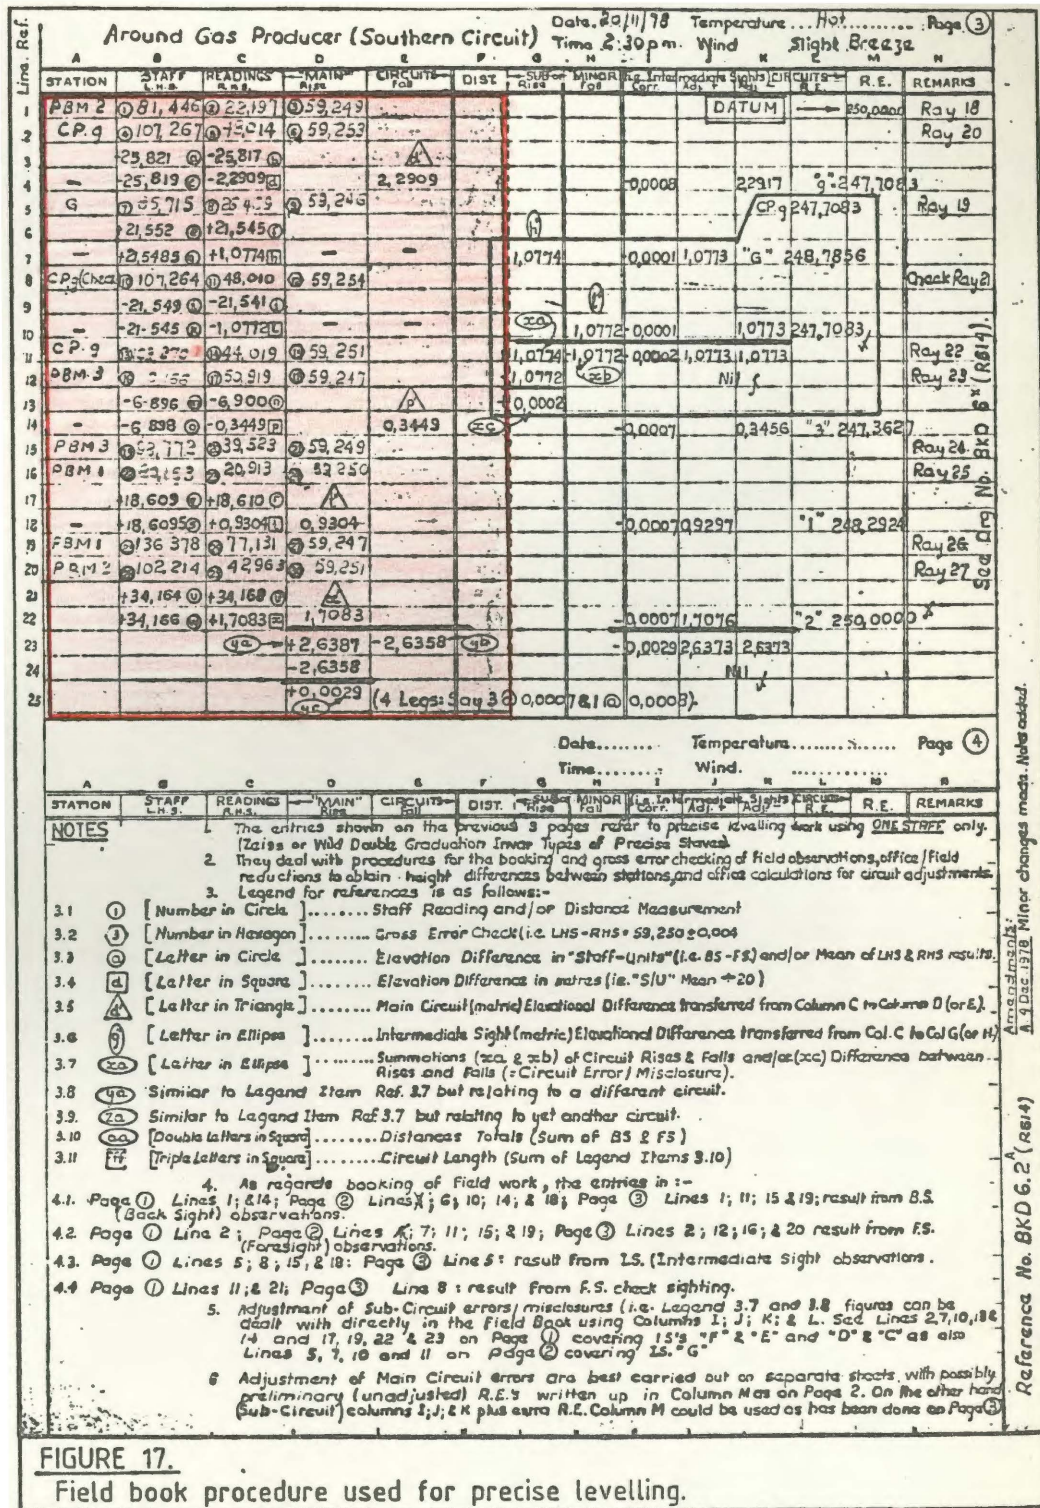 Line. Ref.
Around Gas Producer (Southern Circuit)
Date. 20/11/78 Temperature ... Hot ...... Page ③
Time 2:30pm. Wind Slight Breeze
A B C D E F G H I J K L M N
STATION STAFF L.H.S. READINGS R.H.S. "MAIN" Rise CIRCUITS Fall DIST. SUB or Rise MINOR Fall (i.e. Intermediate Sights) CIRCUITS Corr. Adj. + Adj. - R.E. R.E. REMARKS
1 PBM 2 ① 81,446 ② 22,197 ③ 59,249 DATUM 250,0000 Ray 18
2 CP.g ④ 107,267 59,253 Ray 20
3 -25,821 ⓐ -25,817 ⓑ d
4 - -25,819 ⓒ -2,2909 d 2,2909 -0,0008 2,2917 "g" 247,7083
5 G ⑦ ⑧ ⑨ CP.g 247,7083 Ray 19
6 +21,552 ⓔ +21,545 ⓕ
7 - +21,5485 ⓖ +1,0774 h - - 1,0774 -0,0001 1,0773 "G" 248,7856
8 CPg(Check) ⑩ 107,264 ⑪ 48,010 ⑫ 59,254 Check Ray 21
9 -21,549 -21,541
10 - -21,545 ⓚ -1,0772 - - xa 1,0772 -0,0001 1,0773 247,7083
11 CP.g 44,019 59,251 1,0774 -1,0772 -0,0002 1,0773 1,0773 Ray 22
12 PBM.3 59,247 -1,0772 xb Nil Ray 23
13 -6,896 -6,900 ⓝ p 0,0002
14 - -6,898 ⓞ -0,3449 p 0,3449 xc -0,0007 0,3456 "3" 247,3627
15 PBM 3 59,249 Ray 24
16 PBM 1 20,913 Ray 25
17 +18,609 +18,610
18 - +18,6095 ⓢ +0,9304 t 0,9304 -0,0007 0,9297 "1" 248,2924
19 PBM 1 136,378 77,131 59,247 Ray 26
20 102,214 42,963 59,251 Ray 27
21 +34,164 ⓤ +34,168 ⓥ
22 +34,166 +1,7083 1,7083 -0,0007 1,7076 "2" 250,0000
23 ya +2,6387 -2,6358 yb -0,0029 2,6373 2,6373
24 -2,6358 Nil
25 +0,0029 yc (4 Legs: Say 3 @ 0,0007 & 1 @ 0,0008).
See Drg No. BKD 6 x (R614).
Date......... Temperature............. Page ④
Time......... Wind. ............
A B C D E F G H I J K L M N
STATION STAFF L.H.S. READINGS R.H.S. "MAIN" Rise CIRCUITS Fall DIST. SUB or Rise MINOR Fall (i.e. Intermediate Sights) CIRCUITS Corr. Adj. + Adj. - R.E. R.E. REMARKS
NOTES 1. The entries shown on the previous 3 pages refer to precise levelling work using ONE STAFF only.
(Zeiss or Wild Double Graduation Invar Types of Precise Staves)
2. They deal with procedures for the booking and gross error checking of field observations, office/field
reductions to obtain height differences between stations, and office calculations for circuit adjustments.
3. Legend for references is as follows:-
3.1 ① [Number in Circle]........ Staff Reading and/or Distance Measurement
3.2 3 [Number in Hexagon]........ Gross Error Check (i.e. LHS-RHS = 59,250 ± 0,004
3.3 ⓐ [Letter in Circle]........ Elevation Difference in "Staff-Units" (i.e. BS-FS) and/or Mean of LHS & RHS results.
3.4 d [Letter in Square]........ Elevation Difference in metres (ie. "S/U" Mean ÷ 20)
3.5 d [Letter in Triangle]........ Main Circuit (metric) Elevational Difference transferred from Column C to Column D (or E).
3.6 g [Letter in Ellipse]........ Intermediate Sight (metric) Elevational Difference transferred from Col. C to Col G (or H)
3.7 xa [Letter in Ellipse]........ Summations (xa & xb) of Circuit Rises & Falls and/or (xc) Difference between
Rises and Falls (= Circuit Error/Misclosure).
3.8 ya Similar to Legend Item Ref. 3.7 but relating to a different circuit.
3.9. za Similar to Legend Item Ref 3.7 but relating to yet another circuit.
3.10 aa [Double Letters in Square]........ Distances Totals (Sum of BS & FS)
3.11 fff [Triple Letters in Square]........ Circuit Length (Sum of Legend Items 3.10)
4. As regards booking of field work, the entries in :-
4.1. Page ① Lines 1; &14; Page ② Lines 1; 6; 10; 14; & 18; Page ③ Lines 1; 11; 15 & 19; result from B.S.
(Back Sight) observations.
4.2. Page ① Line 2; Page ② Lines 7; 11; 15; & 19; Page ③ Lines 2; 12; 16; & 20 result from F.S.
(Foresight) observations.
4.3. Page ① Lines 5; 8; 15, & 18: Page ③ Line 5: result from I.S. (Intermediate Sight observations.
4.4 Page ① Lines 11; & 21; Page ③ Line 8 : result from F.S. check sighting.
5. Adjustment of Sub-Circuit errors/misclosures (i.e. Legend 3.7 and 3.8 figures can be
dealt with directly in the Field Book using Columns I; J; K; & L. See Lines 2,7,10,13&
14 and 17, 19, 22 & 23 on Page ① covering IS's "F" & "E" and "D" & "C" as also
Lines 5, 7, 10 and 11 on Page ② covering IS. "G"
6 Adjustment of Main Circuit errors are best carried out on separate sheets, with possibly
preliminary (unadjusted) R.E.'s written up in Column M as on Page 2. On the other hand
(Sub-Circuit) columns I; J; & K plus extra R.E. Column M could be used as has been done on Page ③
Amendments:
A. 9 Dec. 1978 Minor changes made. Notes added.
Reference No. BKD 6.2 A (R614)
FIGURE 17.
Field book procedure used for precise levelling.